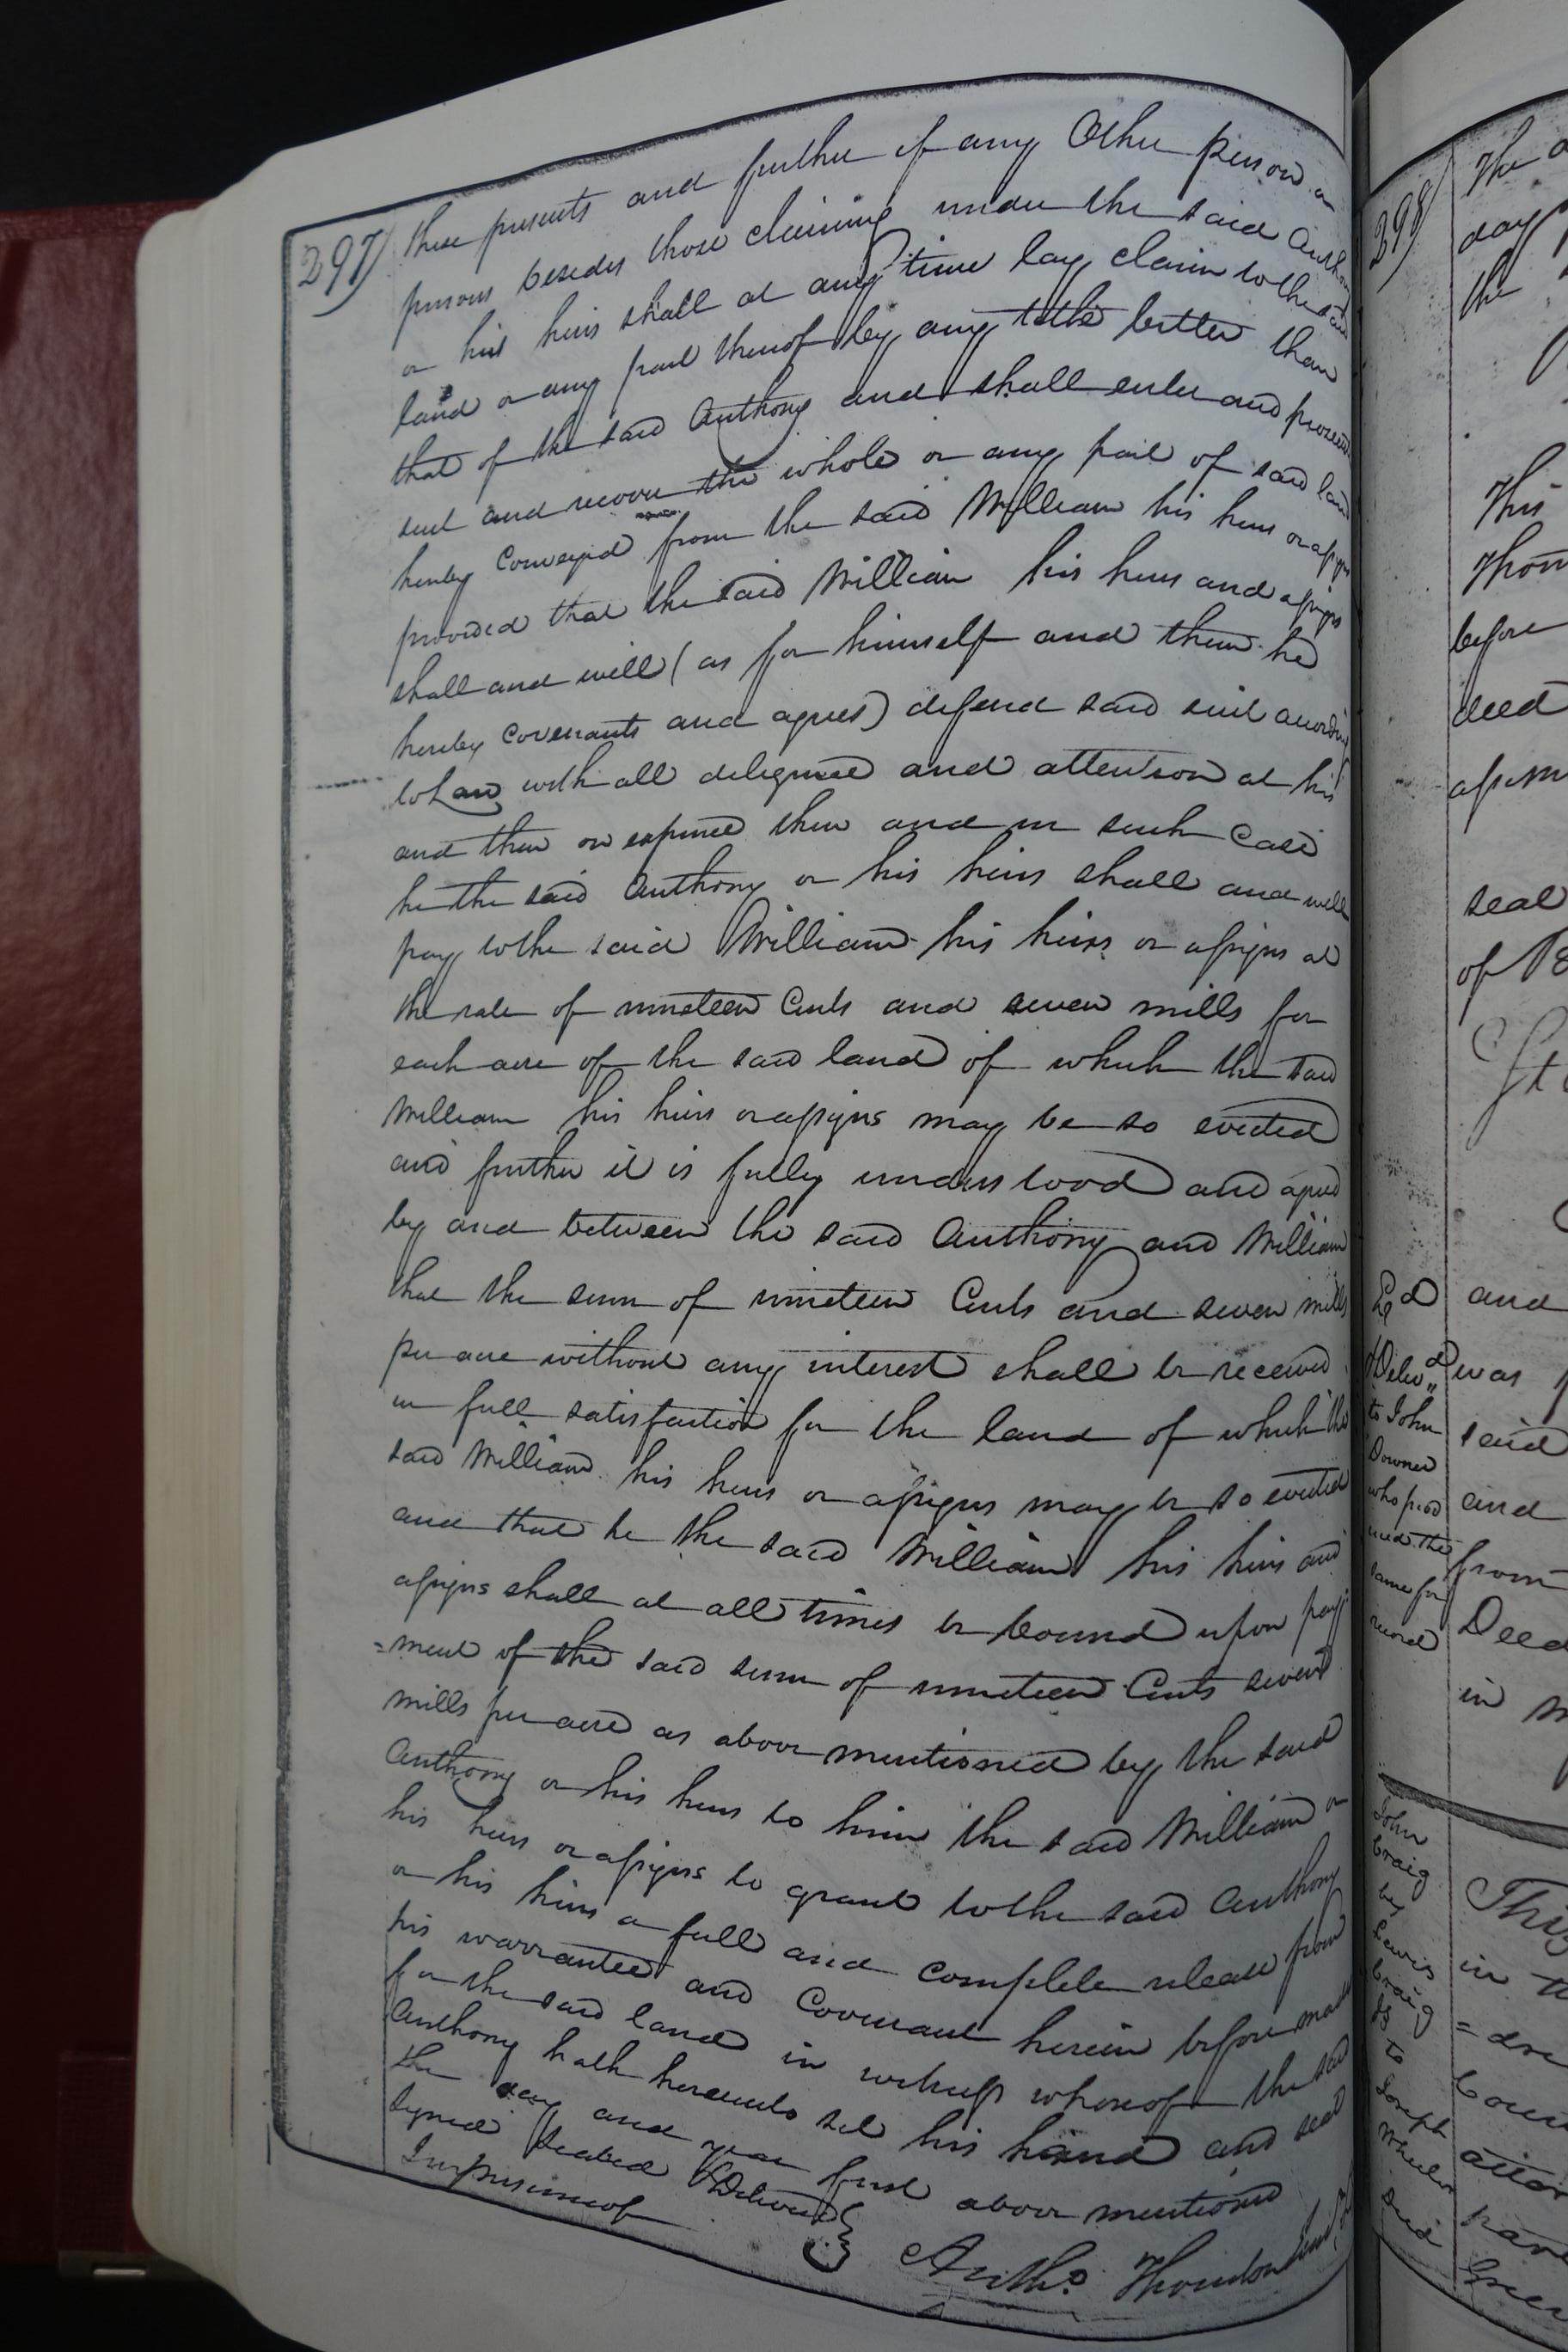 297
these presents and further if any Other person or
persons besides those claiming under the said Anthony
or his heirs shall at any time lay claim to the said
land or any part thereof by any title better than
that of the said Anthony and shall enter and prosecute
suit and recover the whole or any part of said land
hereby Conveyed from the said William his heirs or assigns
provided that the said William his heirs and assigns
shall and will (as for himself and them he
hereby Covenants and agrees) defend said suit according
to Law with all diligence and attention at his
and their own expence then and in such Case
he the said Anthony or his heirs shall and will
pay to the said William his heirs or assigns at
the rate of nineteen Cents and seven mills for
each acre of the said land of which the said
William his heirs or assigns may be so evicted
and further it is fully understood and agreed
by and between the said Anthony and William
that the sum of nineteen Cents and seven mills
per acre without any interest shall be received
in full satisfaction for the land of which the
said William his heirs or assigns may be so evicted
and that he the said William his heirs and
assigns shall at all times be bound upon pay
=ment of the said sum of nineteen Cents seven
mills per acre as above mentioned by the said
Anthony or his heirs to him the said William or
his heirs or assigns to grant to the said Anthony
or his heirs a full and complete release from
his warrantee and Covenant herein before made
for the said land in witness whereof the said
Anthony hath hereunto set his hand and seal
the day and year first above mentioned
Signed Sealed & Delivered
In presence of
Antho. Thornton
298
The
day
the
This
Thom
before
deed
assim
seal
of
and
was
said
and
from
Deed
in
Ed
Delivd
to John
Downed
who prod
uced the
same for
record
John
Craig
by
Lewis
Craig
to
Joseph
Wheeler
This
in